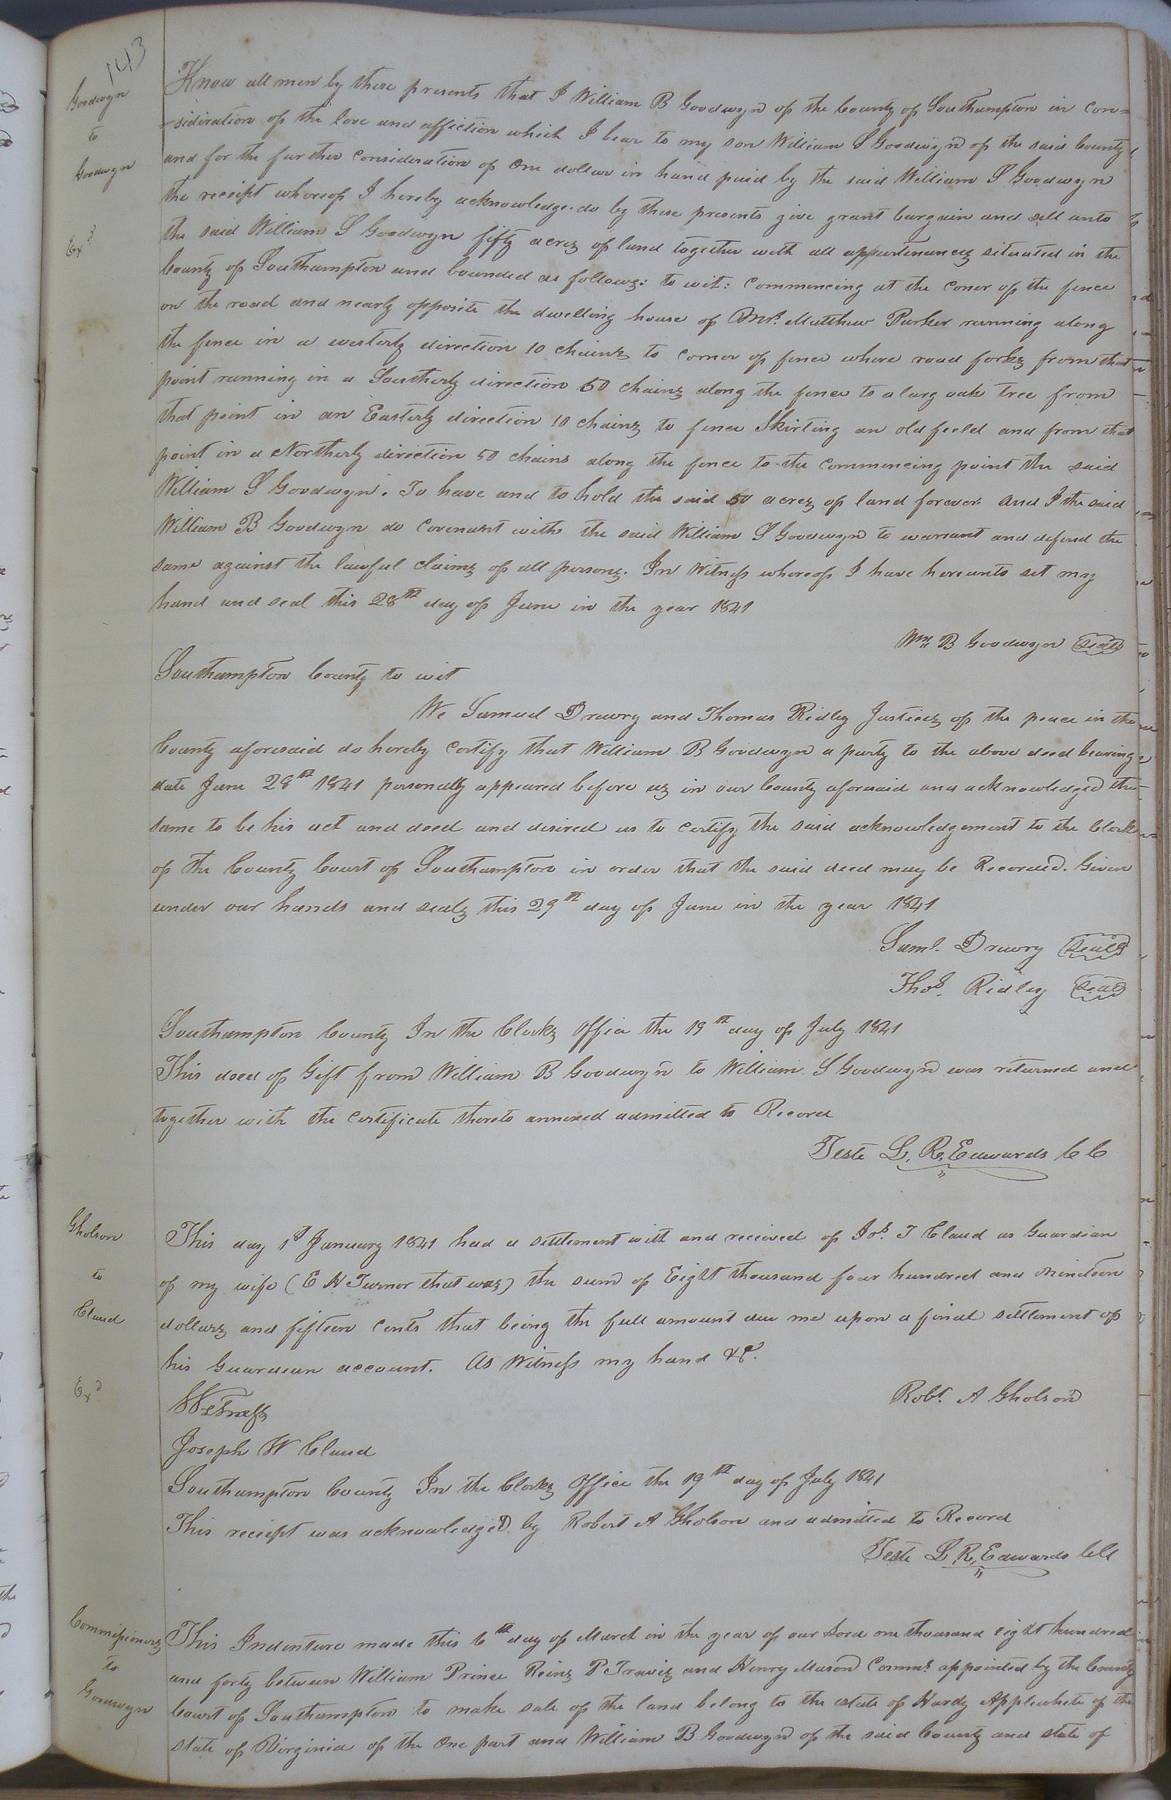 143
Goodwyn
to
Goodwyn
Exd
Know all men by these presents that I William B Goodwyn of the County of Southampton in con=
=sideration of the love and affection which I bear to my son William S Goodwyn of the said County
and for the further consideration of One dollar in hand paid by the said William S Goodwyn
the receipt whereof I hereby acknowledge. do by these presents give grant bargain and sell unto
the said William S Goodwyn fifty acres of land together with all appurtenances situated in the
County of Southampton and bounded as follows: to wit: Commencing at the coner of the fence
on the road and nearly opposite the dwelling house of Mr. Matthew Parker running along
the fence in a westerly direction 10 chains to corner of fence where road forks from that
point running in a Southerly direction 50 chains along the fence to a larg oak tree from
that point in an Easterly direction 10 chains to fence Skirting an old field and from that
point in a Northerly direction 50 chains along the fence to the commencing point the said
William S Goodwyn. To have and to hold the said 50 acres of land forever and I the said
William B Goodwyn do covenant with the said William S Goodwyn to warrant and defend the
same against the lawful claims of all persons. In Witness whereof I have hereunto set my
hand and seal this 28th day of June in the year 1841
Wm B Goodwyn Seal
Southampton County to wit
We Samuel Drewry and Thomas Ridley Justices of the peace in the
County aforesaid do hereby certify that William B Goodwyn a party to the above deed bearing
date June 28th 1841 personally appeared before us in our County aforesaid and acknowledged the
same to be his act and deed and desired us to certify the said acknowledgement to the Clerk
of the County Court of Southampton in order that the said deed may be Recorded. Given
under our hands and seals this 29th day of June in the year 1841
Saml. Drewry Seal
Thos. Ridley Seal
Southampton County In the Clerks Office the 19th day of July 1841
This deed of Gift from William B Goodwyn to William S Goodwyn was returned and
together with the certificate thereto annexed admitted to Record
Teste L. R. Edwards CC
Gholson
to
Claud
Exd
This day 1st January 1841 had a settlement with and received of Jos. T Claud as Guardian
of my wife (E H Turner that was) the sum of Eight thousand four hundred and nineteen
dollars and fifteen cents that being the full amount due me upon a final settlement of
his Guardian account. As Witness my hand &c.
Robt. A Gholson
Witness
Joseph W Claud
Southampton County In the Clerks Office the 19th day of July 1841
This receipt was acknowledged by Robert A Gholson and admitted to Record
Teste L R. Edwards CC
Commissioners
to
Goodwyn
This Indenture made this 6th day of March in the year of our Lord one thousand eight hundred
and forty between William Prince Reins P Travis and Henry Mason Comms. appointed by the County
Court of Southampton to make sale of the land belong to the estate of Hardy Applewhite of the
state of Virginia of the One part and William B Goodwyn of the said County and state of